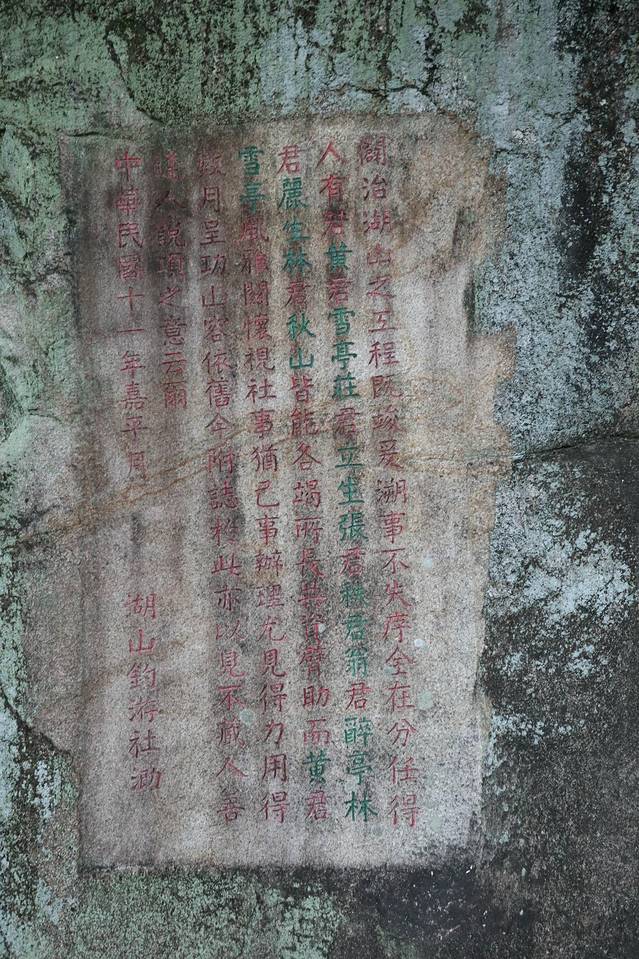 闢治湖山之工程既竣爰溯事不失序全在分任得
人有若黄君雪亭莊君立生張君秩君翁君醉亭林
君麗生林君秋山皆能各竭所長共資臂助而黄君
雪亭風雅關懷視社事猶己事辦理尤見得力用得
月呈功山容依舊今附誌於此亦以見不藏人善
人說項之意云爾
中華民國十一年嘉平月
湖山釣游社泐